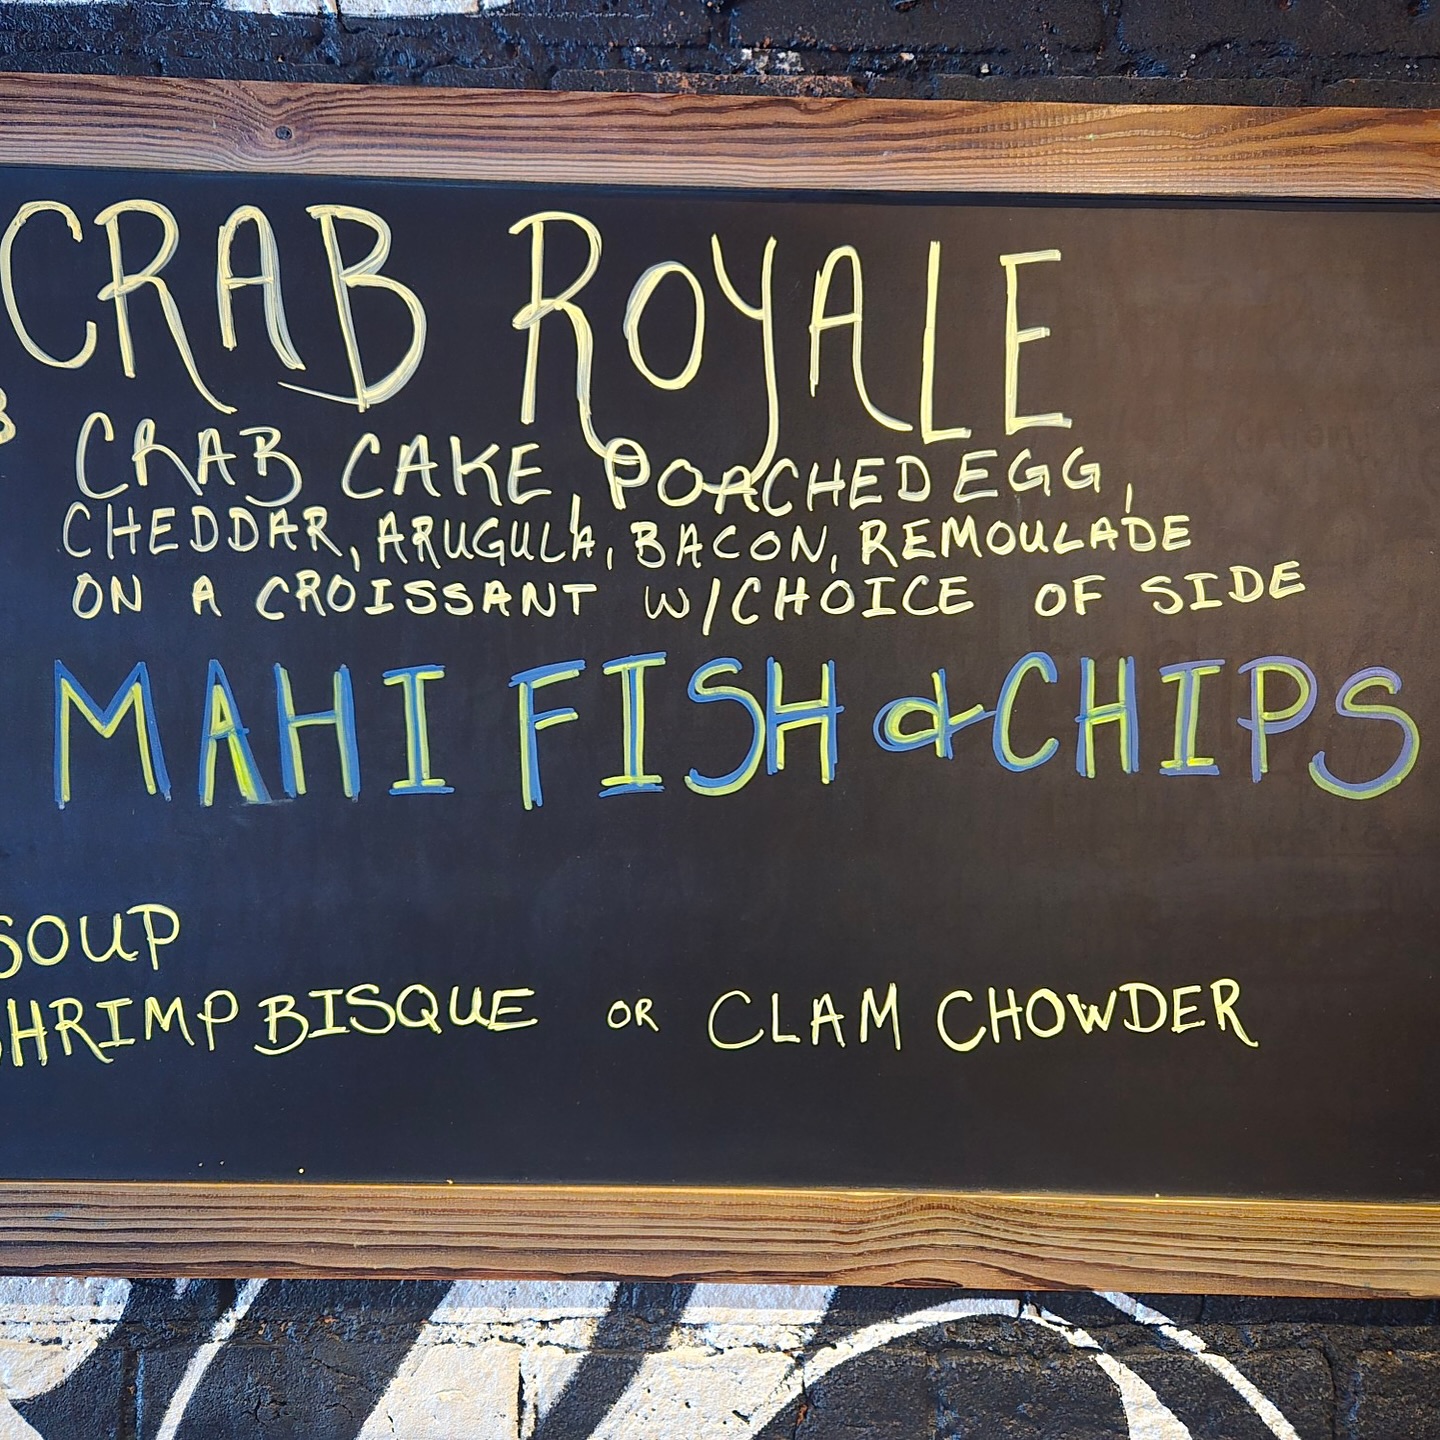 CRAB ROYALE
CRAB CAKE, POACHED EGG,
CHEDDAR, ARUGULA, BACON, REMOULADE
ON A CROISSANT W/CHOICE OF SIDE
MAHI FISH & CHIPS
SOUP
SHRIMP BISQUE OR CLAM CHOWDER